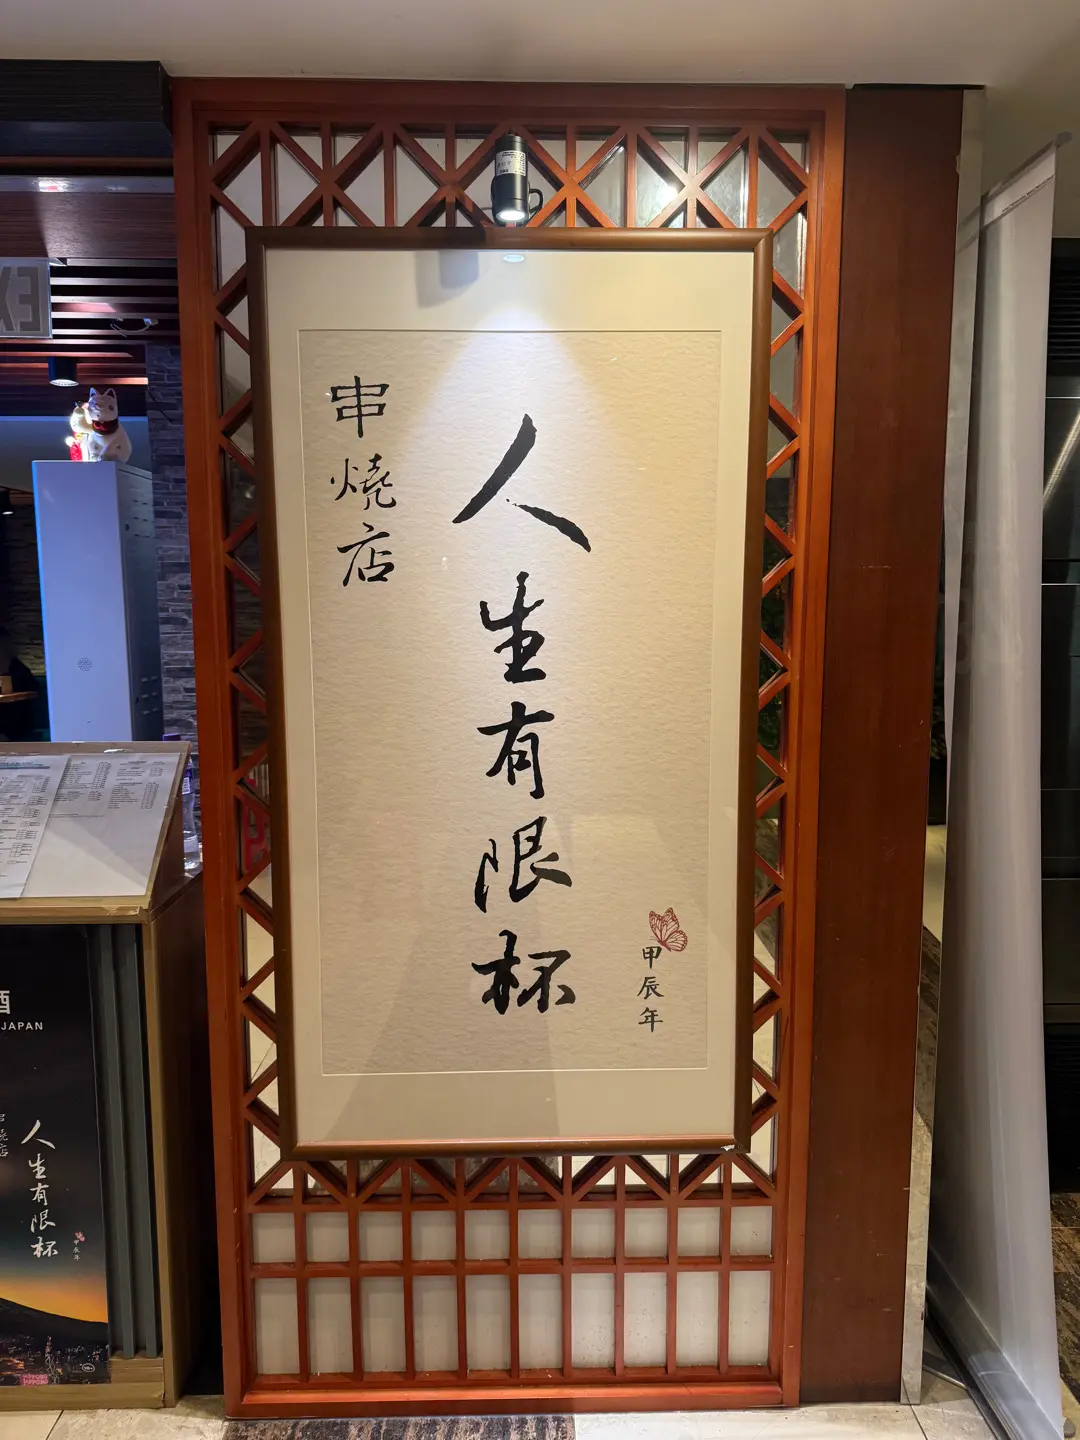 串燒店
人生有限杯
甲辰年
酒
JAPAN
串燒店
人生有限杯
甲辰年
EX